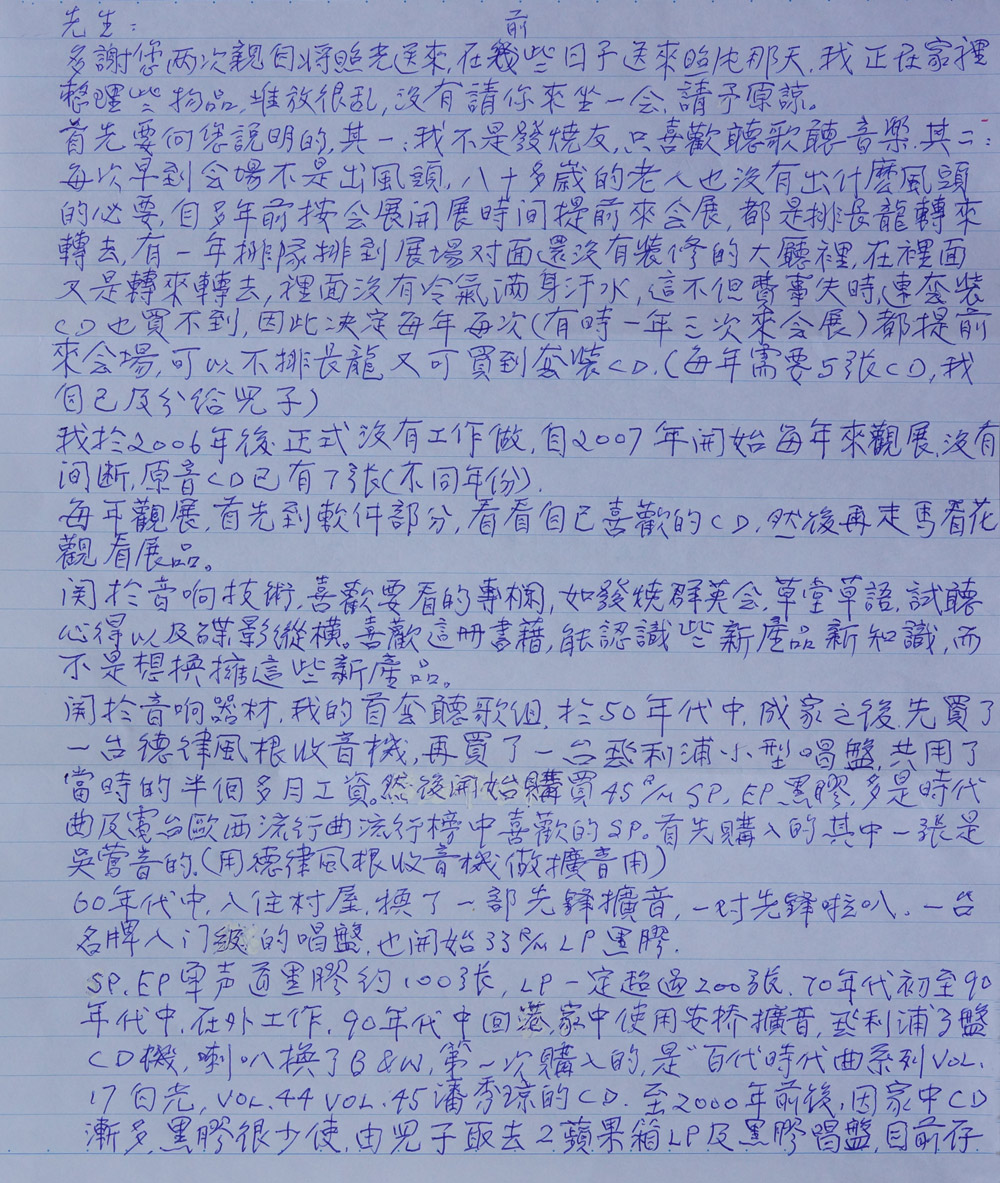 先生：
多謝您两次親自将照片送來，在前些日子送來照片那天，我正在家裡
整理些物品，堆放很乱，没有請你來坐一会，請予原諒。
首先要向您説明的，其一：我不是發燒友，只喜歡聽歌聽音樂。其二：
每次早到会場不是出風頭，八十多歲的老人也没有出什麼風頭
的必要，自多年前按会展開展時间提前來会展，都是排長龍轉來
轉去，有一年排隊排到展場对面還没有裝修的大廳裡，在裡面
又是轉來轉去，裡面没有冷氣满身汗水，這不但費事失時，連套裝
CD也買不到，因此决定每年每次(有時一年三次來会展)都提前
來会場，可以不排長龍又可買到套裝CD。(每年需要5張CD，我
自己及分给兒子)
我於2006年後正式没有工作做，自2007年開始每年來觀展，没有
间断，原音CD已有7張(不同年份)．
每年觀展，首先到軟件部分，看看自己喜歡的CD，然後再走馬看花
觀看展品。
関於音响技術，喜歡要看的專欄，如發燒群英会，草堂草語，試聽
心得以及碟影縱橫。喜歡這册書籍，能認識些新產品新知識，而
不是想换擁這些新產品。
関於音响器材，我的首套聽歌组，於50年代中，成家之後先買了
一台德律風根收音機，再買了一台飛利浦小型唱盤，共用了
當時的半個多月工資。然後開始購買45R/M SP，EP黑膠，多是時代
曲及電台歐西流行曲流行榜中喜歡的SP。首先購入的其中一張是
吳鶯音的．(用德律風根收音機做擴音用)
60年代中，入住村屋，换了一部先鋒擴音，一对先鋒啦叭，一台
名牌入门級的唱盤，也開始33R/M LP黑膠．
SP，EP單声道黑膠约100張，LP一定超過200張．70年代初至90
年代中，在外工作，90年代中回港，家中使用安桥擴音，飛利浦3盤
CD機，喇叭换了B&W，第一次購入的，是"百代時代曲系列VOL.
17白光，VOL.44 VOL.45潘秀琼的CD．至2000年前後，因家中CD
漸多，黑膠很少使，由兒子取去2蘋果箱LP及黑膠唱盤，目前存